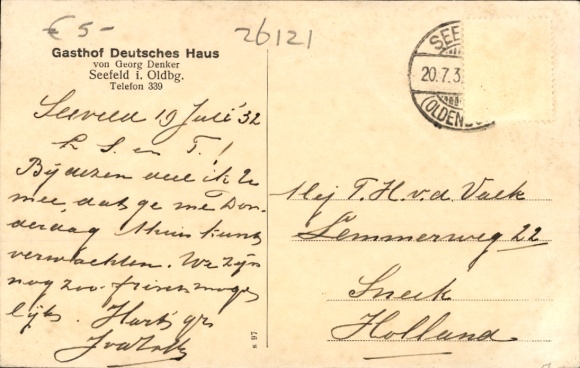 € 5-
26121
Gasthof Deutsches Haus
von Georg Denker
Seefeld i. Oldbg.
Telefon 339
SEE
20.7.3
(OLDENBU
Seeveld 19 Juli '32
L S. en T.!
Bij dezen deel ik U
mee, dat ge me Don-
derdag thuis kunt
verwachten. We zijn
nog zoo frisch moge-
lijk. Hart. grs
s 97
Mej T. H. v. d. Valk
Lemmerweg 22
Sneek
Holland